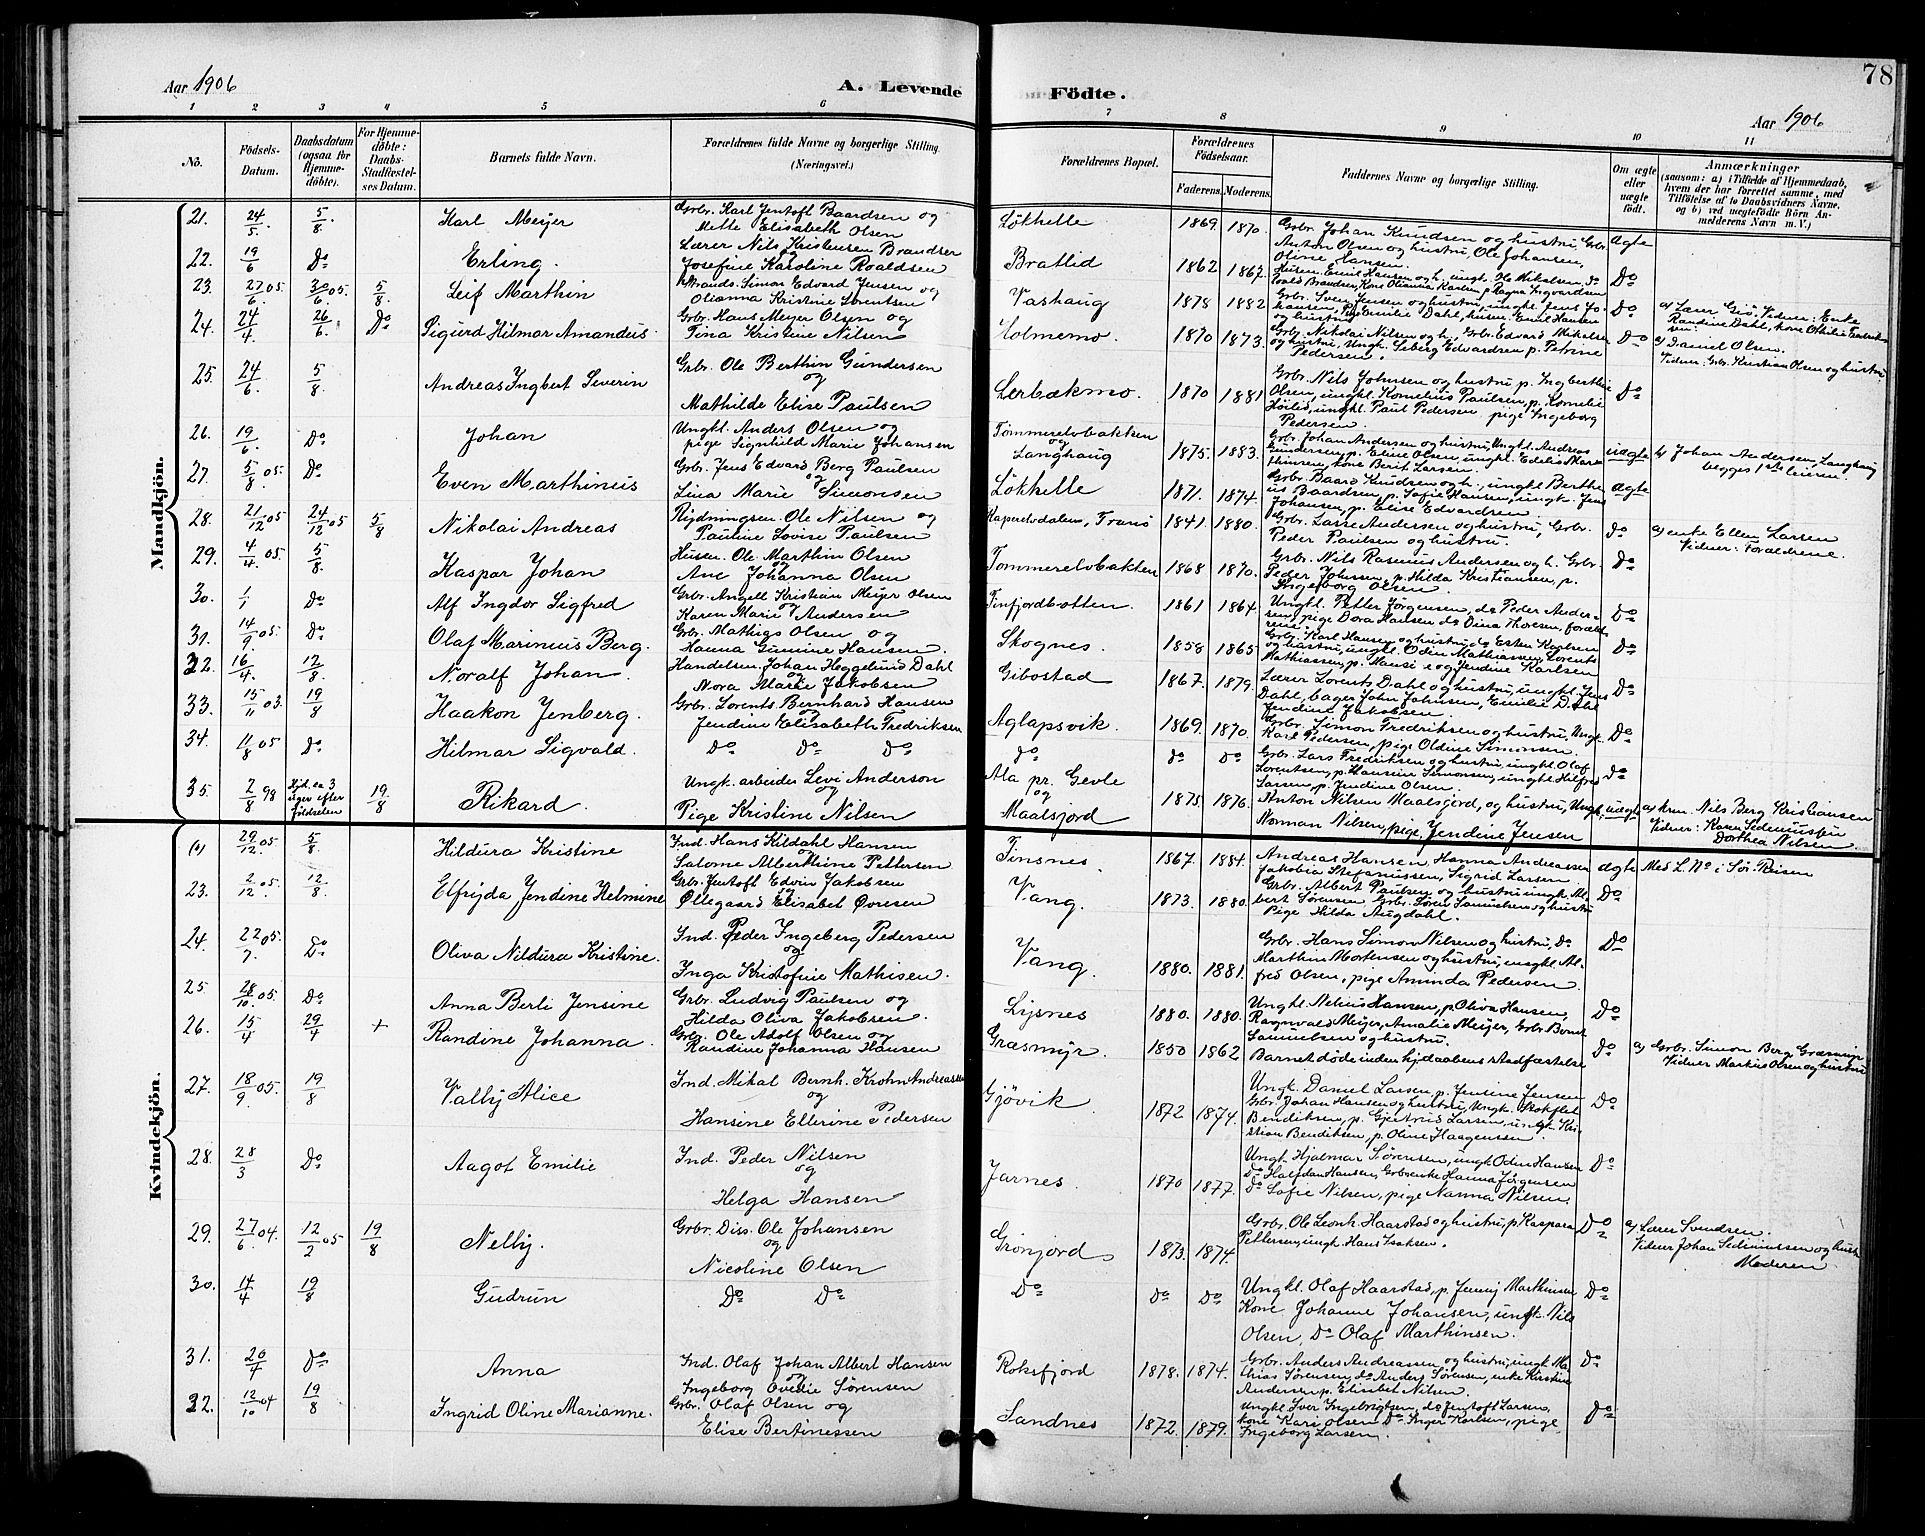 78
Aar 1906
A. Levende Födte.
Aar 1906
1 2 3 4 5 6 7 8 9 10 11
No.
Födsels-Datum.
Daabsdatum (ogsaa for Hjemme-döbte).
For Hjemme-döbte: Daabs-Stadfæstel-ses Datum.
Barnets fulde Navn.
Forældrenes fulde Navne og borgerlige Stilling. (Næringsvei.)
Forældrenes Bopæl.
Forældrenes Födselsaar.
Faderens. Moderens.
Faddernes Navne og borgerlige Stilling.
Om ægte eller uægte födt.
Anmærkninger
(saasom: a) i Tilfælde af Hjemmedaab, hvem der har forrettet samme, med Tilföielse af to Daabsvidners Navne, og b) ved uægtefödte Börn An-melderens Navn m. V.)
Mandkjön.
21. 24/5. 5/8. Karl Meyer Grbr. Karl Jentoft Baardsen og Mette Elisabeth Olsen Løkhelle 1869. 1870. Grbr. Johan Knudsen og hustru, Grbr. Anton Olsen og hustru, Ole Johansen, Oline Hansen. Ægte
22. 19/6 Do Erling. Lærer Nils Kristensen Brandser og Josefine Karoline Roaldsen Bratlid 1862 1867. Do
23. 27/6 05. 30/6 05. 5/8 Leif Marthin Simon Edvard Jensen og Olianna Kristine Lorentsen Vashaug 1878 1882 Grbr. Sven Jensen og hustru, ungk. Jens Johansen, Emilie Dahl, Emil Hansen og hustru Do a) Lærer Gjø. Vidner: Enke Randine Dahl, kone Othilie Fredriksen.
24. 24/4. 26/6. Do Sigurd Hilmar Amandus. Grbr. Hans Meyer Olsen og Tina Kristine Nilsen Holmemo. 1870 1873. Grbr. Nikolai Nilsen og h., Grbr. Edvard Mikelsen og hustru, Ungk. Seberg Edvardsen p. Petrine Pedersen. Do a) Daniel Olsen. Vidner: Grbr. Kristian Olsen og hustru.
25. 24/6. 5/8 Andreas Ingbert Severin Grbr. Ole Berthin Gundersen og Mathilde Elise Paulsen Lerbækmo. 1870 1881 Grbr. Nils Johnsen og hustru, p. Ingberthine Olsen, ungkl. Kornelius Paulsen, p. Kornelie Høilid, ungkl. Paul Pedersen pige Ingeborg Pedersen. Do
26. 19/6. Do Johan Ungkl. Anders Olsen og pige Signhild Marie Johansen Tømmerelvbakken og Langhaug 1875. 1883. Grbr. Johan Andersen og hustru, Ungkl. Andreas Gundersen, p. Eline Olsen, ungkl. Edelis Marthinsen, kone Berit Larsen. uægte b) Johan Andersen, Langhaug begges 1ste leierm.
27. 5/8 05. Do Even Marthinus Grbr. Jens Edvard Berg Paulsen og Lina Marie Simonsen Løkhelle 1871. 1874. Grbr. Baard Knudsen og h., ungkl. Bertheus Baardsen, p. Sofie Hansen, ungk. Jens Johansen, p. Elise Edvardsen. ægte
28. 21/12 05 24/12 05 5/8 Nikolai Andreas Rydningsm. Ole Nilsen og Pauline Lovise Paulsen Kaperelvdalen, Tranø 1841. 1880. Grbr. Lars Andersen og hustru, Grbr. Peder Paulsen og hustru. do a) enke Ellen Larsen Vidner: Forældrene.
29. 4/4 05. 5/8. Kaspar Johan Husm. Ole Marthin Olsen og Ane Johanna Olsen Tømmerelvbakken 1868 1870. Grbr. Nils Rasmus Andersen og h. Grbr. Peder Johnsen, p. Hilda Kristiansen, p. Ingeborg Olsen. Do
30. 1/1 Do Alf Ingdor Sigfred Grbr. Angell Kristian Meyer Olsen og Karen Marie Andersen Finfjordbotten. 1861 1864. Ungkl. Petter Jörgensen, do Peder Andersen, pige Dora Hansen do Dina Thoresen, forældrene. Do
31. 14/9 05. Do Olaf Marinius Berg. Grbr. Mathias Olsen og Hanna Gumine Hansen. Skognes. 1858 1865 Grbr. Karl Hansen og hustru, Esten Karlsen og hustru, ungkl. Odin Mathiassen, Lorents Mathiassen, p. Hansie og Jendine Karlsen Do
32. 16/4. 12/8 Noralf Johan. Handelsm. Johan Heggelund Dahl og Nora Marie Jakobsen Gibostad 1867. 1879. Lærer Lorents Dahl og hustru, ungkl. Jens Dahl, bager John Johnsen, Emilie Dahl, Jendine Jakobsen. Do
33. 15/11 03. 19/8 Haakon Jenberg. Grbr. Lorents Bernhard Hansen og Jendine Elisabeth Fredriksen Aglapsvik. 1869. 1870. Grbr. Simon Fredriksen og hustru, Ungk. Karl Pedersen, pige Oldine Simonsen. Do
34. 11/8 05 Do Hilmar Sigvald. Do Do Do do do do Grbr. Lars Fredriksen og hustru, ungkl. Olaf Lorentsen, p. Hansine Simonsen, ungkl. Hilfred Larsen, p. Jendine Olsen. Do
35. 2/8 98 Hjd. ca 3 uger efter födselen 19/8 Rikard. Ungk. arbeider Levi Anderson og Pige Kristine Nilsen Ala pr. Gevle og Maalsjord 1875. 1876. Anton Nilsen Maalsjord, og hustru, Ungk. Norman Nilsen, pige Jendine Jensen uægte a) krm. Nils Berg Kristiansen Vidner: Karen Sedeniussen Dorthea Nilsen
Kvindekjön.
(1) 29/12. 05 5/8. Hildura Kristine Ind. Hans Kildahl Hansen og Salome Alberthine Pettersen Finsnes 1867. 1884. Andreas Hansen, Hanna Andreassen Jakobia Stefanussen, Sigrid Larsen ægte Med L. No i Sör-Reisen
23. 2/12. 05. 12/8 Elfrijda Jendine Helmine Grbr. Jentoft Edvin Jakobsen og Øllegaard Elisabet Øvresen Vang. 1873. 1880. Grbr. Albert Paulsen og hustru, ungk. Albert Sørensen, Grbr. Søren Samuelsen og hustru Pige Hilda Augdahl. Do
24. 22/7 05. Do Oliva Nildura Kristine. Ind. Peder Ingeberg Pedersen og Inga Kristofine Mathisen. Vang. 1880. 1881. Grbr. Hans Simon Nilsen og hustru, Do Marthin Mortensen og hustru, ungkl. Alfred Olsen, pige Aminda Pedersen. Do
25. 28/10 05. Do Anna Berli Jensine Grbr. Ludvig Paulsen og Hilda Oliva Jakobsen. Lysnes 1880. 1880. Ungkl. Nelius Hansen, p. Oliva Hansen, Ragnvald Meyer, Amalie Meyer, Grbr. Bernt Samuelsen og hustru. Do
26. 15/4 29/4 + Randine Johanna. Grbr. Ole Adolf Olsen og Randine Johanna Hansen Græsmyr. 1850 1862 Barnet døde inden hjdaabens stadfæstelse Do a) Grbr. Simon Berg Græsmyr Vidner Markus Olsen og hustru
27. 18/9 05. 19/8 Valby Alice Ind. Mikal Bernh. Krohn Andreassen og Hansine Ellerine Pedersen Gjøvik 1872 1874. Ungk. Daniel Larsen, p. Jensine Jensen Grbr. Johan Hansen og hustru, Ungk. Bendiksen, p. Gjertrud Larsen, ungk. Kristian Bendiksen, p. Oline Haagensen. Do
28. 28/3 Do Aagot Emilie Ind. Peder Nilsen og Helga Hansen Jarnes. 1870 1877. Ungk. Hjalmar Sørensen, ungk. Odin Hansen Do Halfdan Hansen, Grbrenke Hanna Jørgensen Do Sofie Nilsen, pige Nanna Nilsen. Do
29. 27/6. 04. 12/2 05 19/8 Nelly. Grbr. Diss. Ole Johansen og Nicoline Olsen Grønjord 1873. 1874. Grbr. Ole Leonh. Haarstad og hustru, p. Kaspara Pettersen, ungk. Hans Isaksen. Do a) Lærer Svendsen. Vidner Johan Sedeniussen og hust. Moderen
30. 14/4 19/8 Gudrun Do Do Do Do Do Ungkl. Olaf Haarstad, p. Jenny Marthinsen Kone Johanne Johansen, ungk. Nils Olsen, Do Olaf Marthinsen. Do
31. 20/4 Do Anna Ind. Olaf Johan Albert Hansen og Ingeborg Ovedie Sørensen Roksfjord 1878. 1874. Grbr. Anders Andreassen og hustru, ungk. Mathias Sørensen, do Anders Sørensen, enke Kirstine Andersen p. Elisabet Nilsen. Do
32. 12/10 04 19/8 Ingrid Oline Marianne. Grbr. Olaf Olsen og Elise Bertinessen Sandnes 1872. 1879. Ungkl. Iver Ingebrigtsen, do Jentoft Larsen, kone Kari Olsen Do Inger Karlsen, pige Ingeborg Larsen. Do